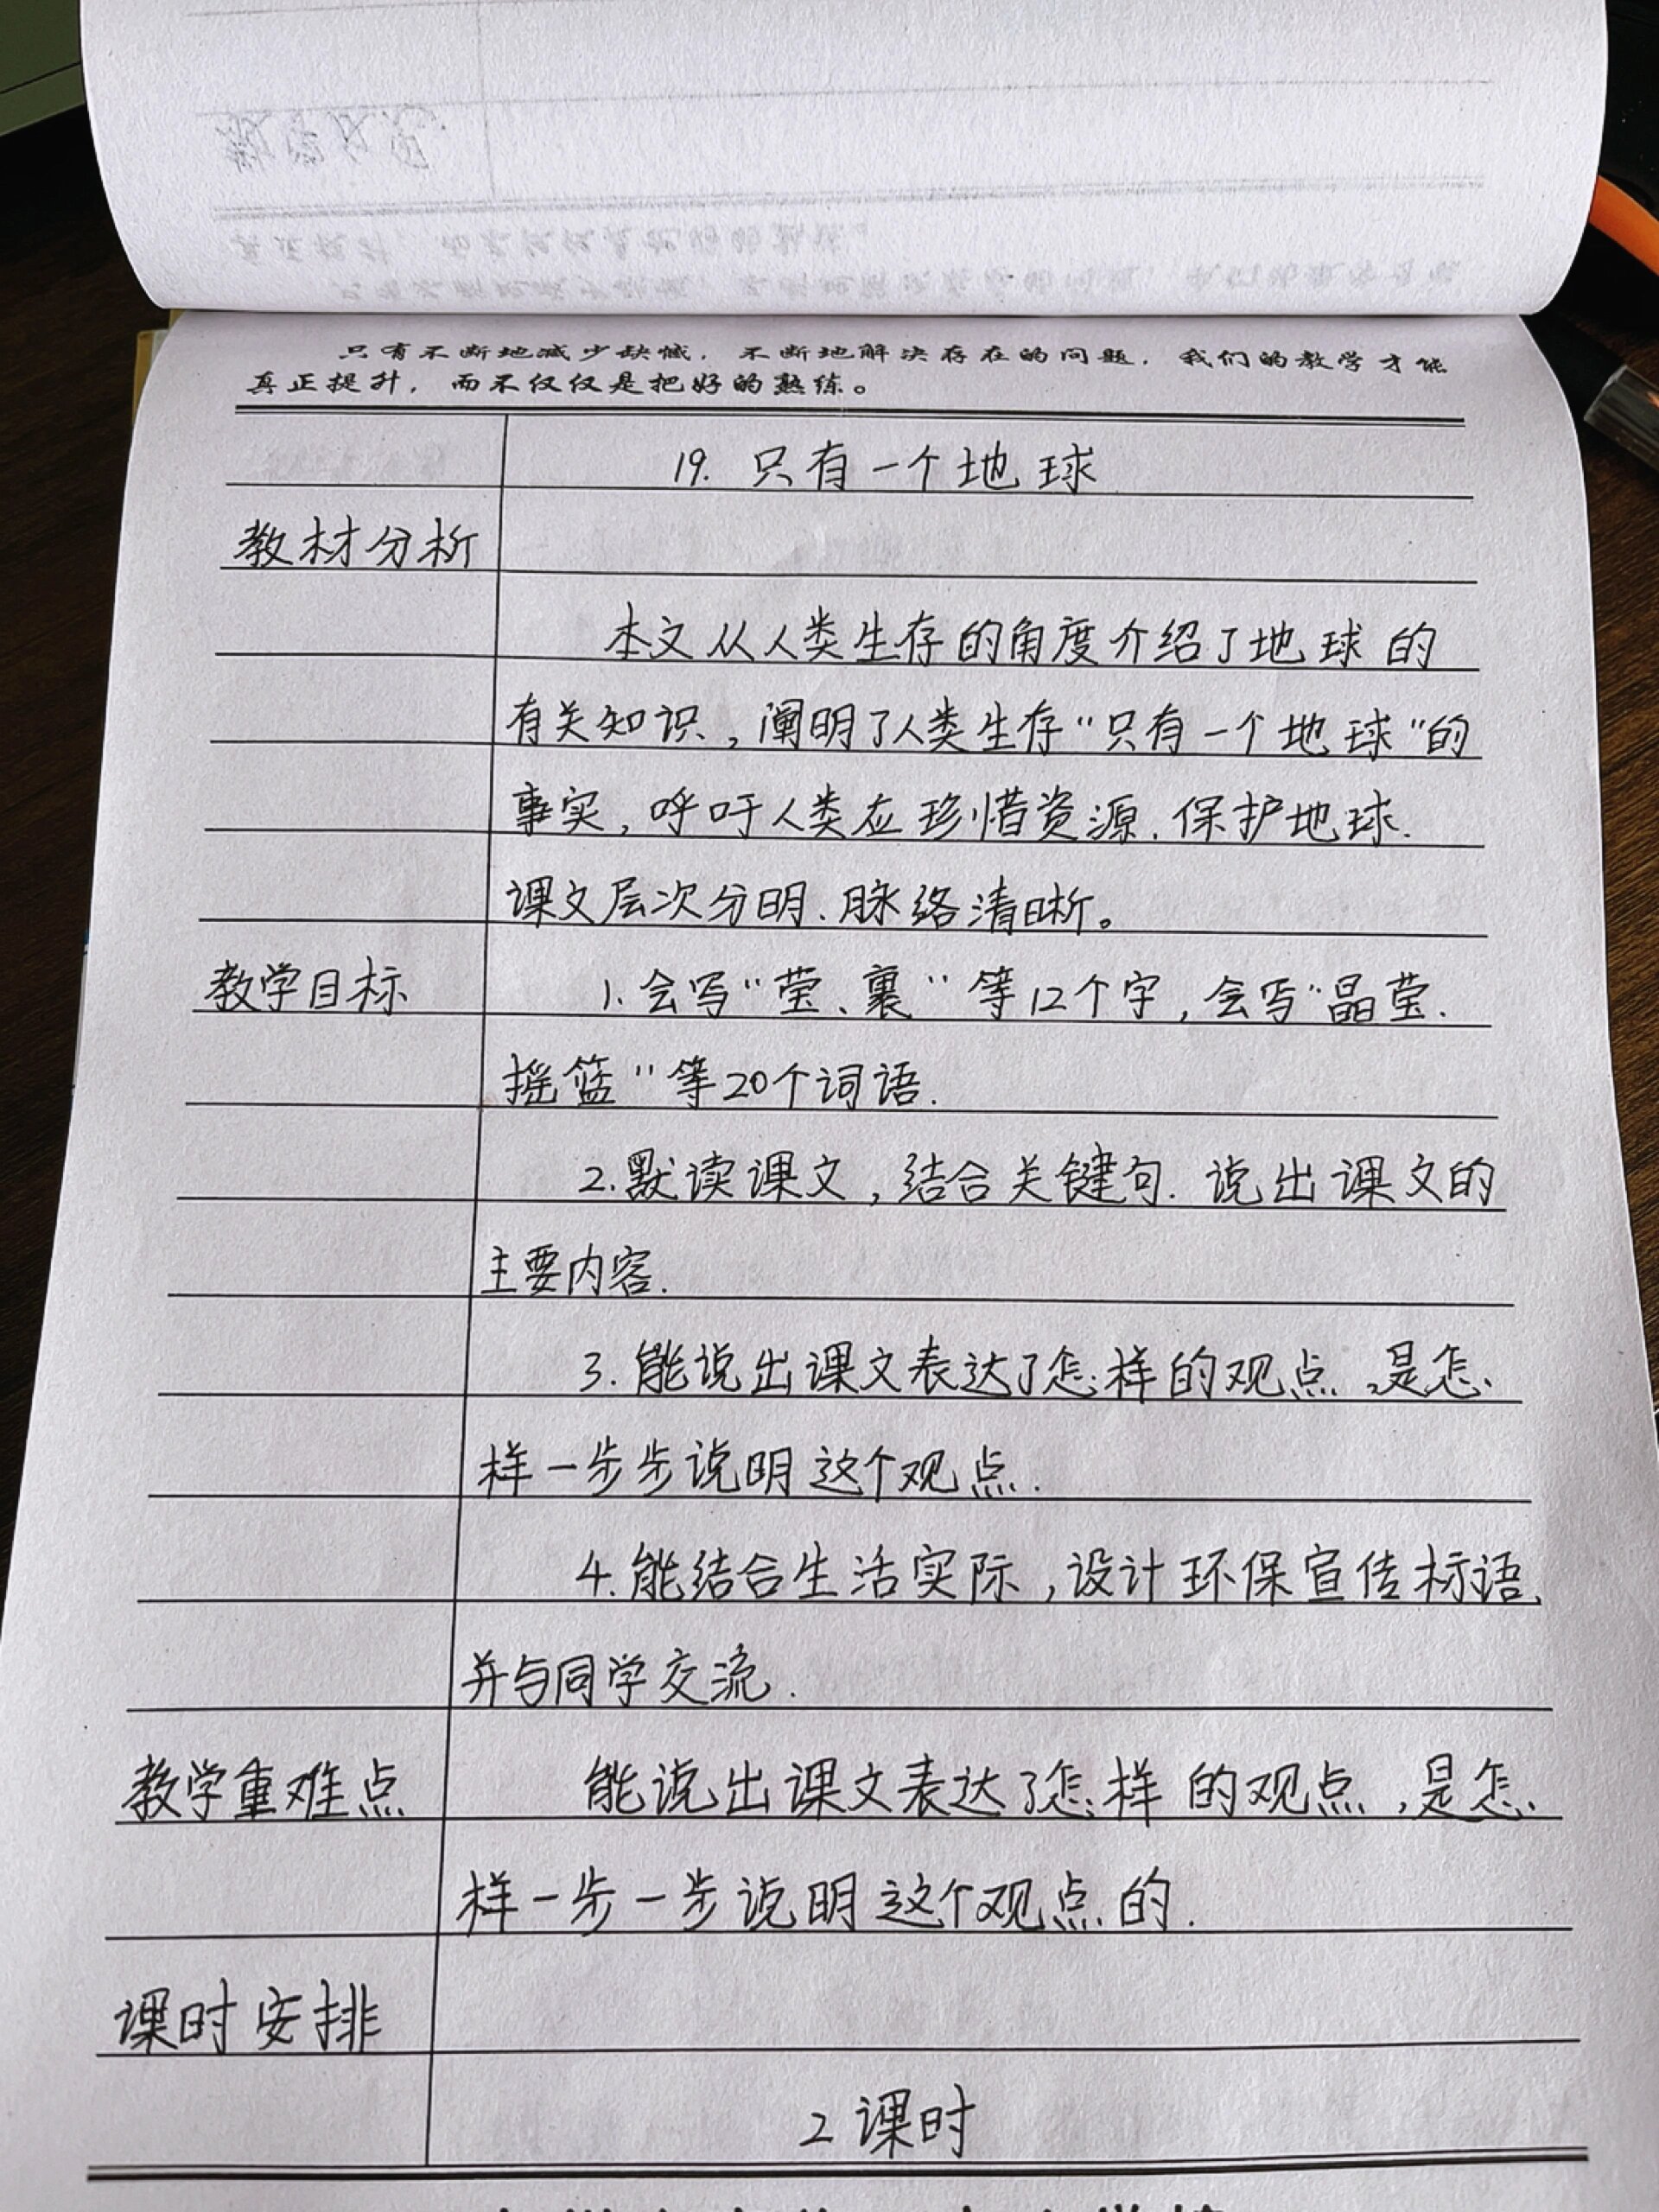 只有不断地减少缺憾，不断地解决存在的问题，我们的教学才能
真正提升，而不仅仅是把好的熟练。
19. 只有一个地球
教材分析
本文从人类生存的角度介绍了地球的
有关知识，阐明了人类生存“只有一个地球”的
事实，呼吁人类应珍惜资源.保护地球.
课文层次分明、脉络清晰。
教学目标 1. 会写“莹、裹”等12个字，会写“晶莹.
摇篮”等20个词语.
2.默读课文，结合关键句.说出课文的
主要内容.
3. 能说出课文表达了怎样的观点，是怎
样一步步说明这个观点.
4.能结合生活实际，设计环保宣传标语,
并与同学交流.
教学重难点 能说出课文表达了怎样的观点，是怎
样一步一步说明这个观点的.
课时安排
2课时